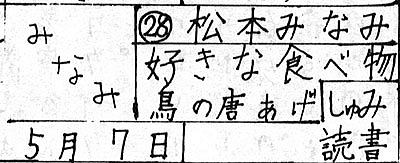 みなみ
㉘ 松本みなみ
好きな食べ物
鳥の唐あげ
しゅみ
読書
5月7日